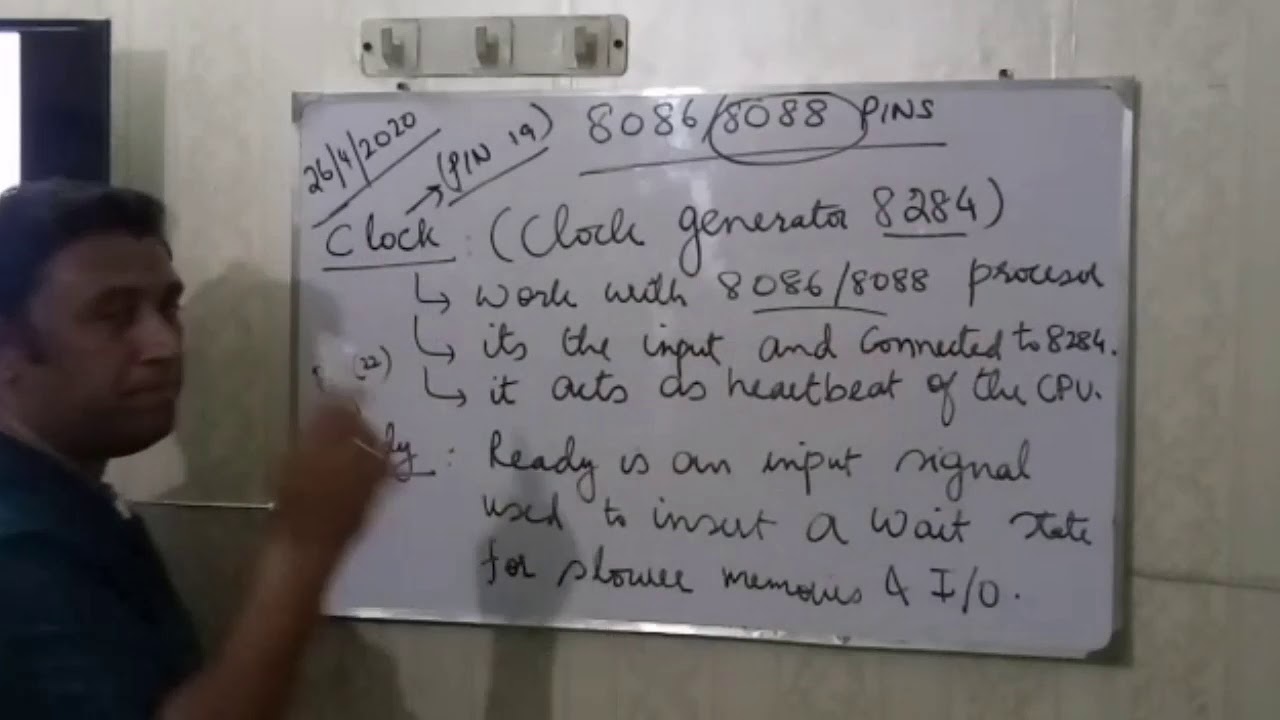 26/4/2020
(PIN 19)
8086/8088 PINS
Clock : (Clock generator 8284)
↳ work with 8086/8088
↳ its the input and Connected to 8284.
↳ it acts as heartbeat of the CPU.
(22)
: Ready is an input signal
used to insert a Wait state
for slower memories & I/O.